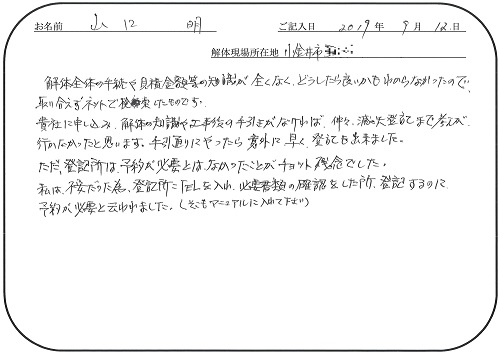 お名前 山口 明
ご記入日 2019年 9月 12日
解体現場所在地 小金井市
解体全体の手続や見積金額等の知識が全くなく、どうしたら良いかもわからなかったので、
取り合えずネットで検索したものです。
貴社に申し込み、解体の知識や工事後の手引きがなければ、仲々、滅失登記まで考えが
行かなかったと思います。手引通りにやったら意外に早く登記も出来ました。
ただ、登記所は、予約が必要とは、なかったことがチョット残念でした。
私は、不安だった為、登記所にTELを入れ、必要書類の確認をした所、登記するのに、
予約が必要と云われました。(そこもマニュアルに入れて下さい)